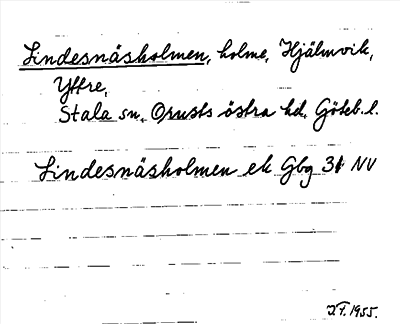 Lindesnäsholmen, holme, Hjälmvik,
Yffre,
Stala sn. Orusts östra hd. Göteb. l.
Lindesnäsholmen ek Gbg 31 NV
1955.